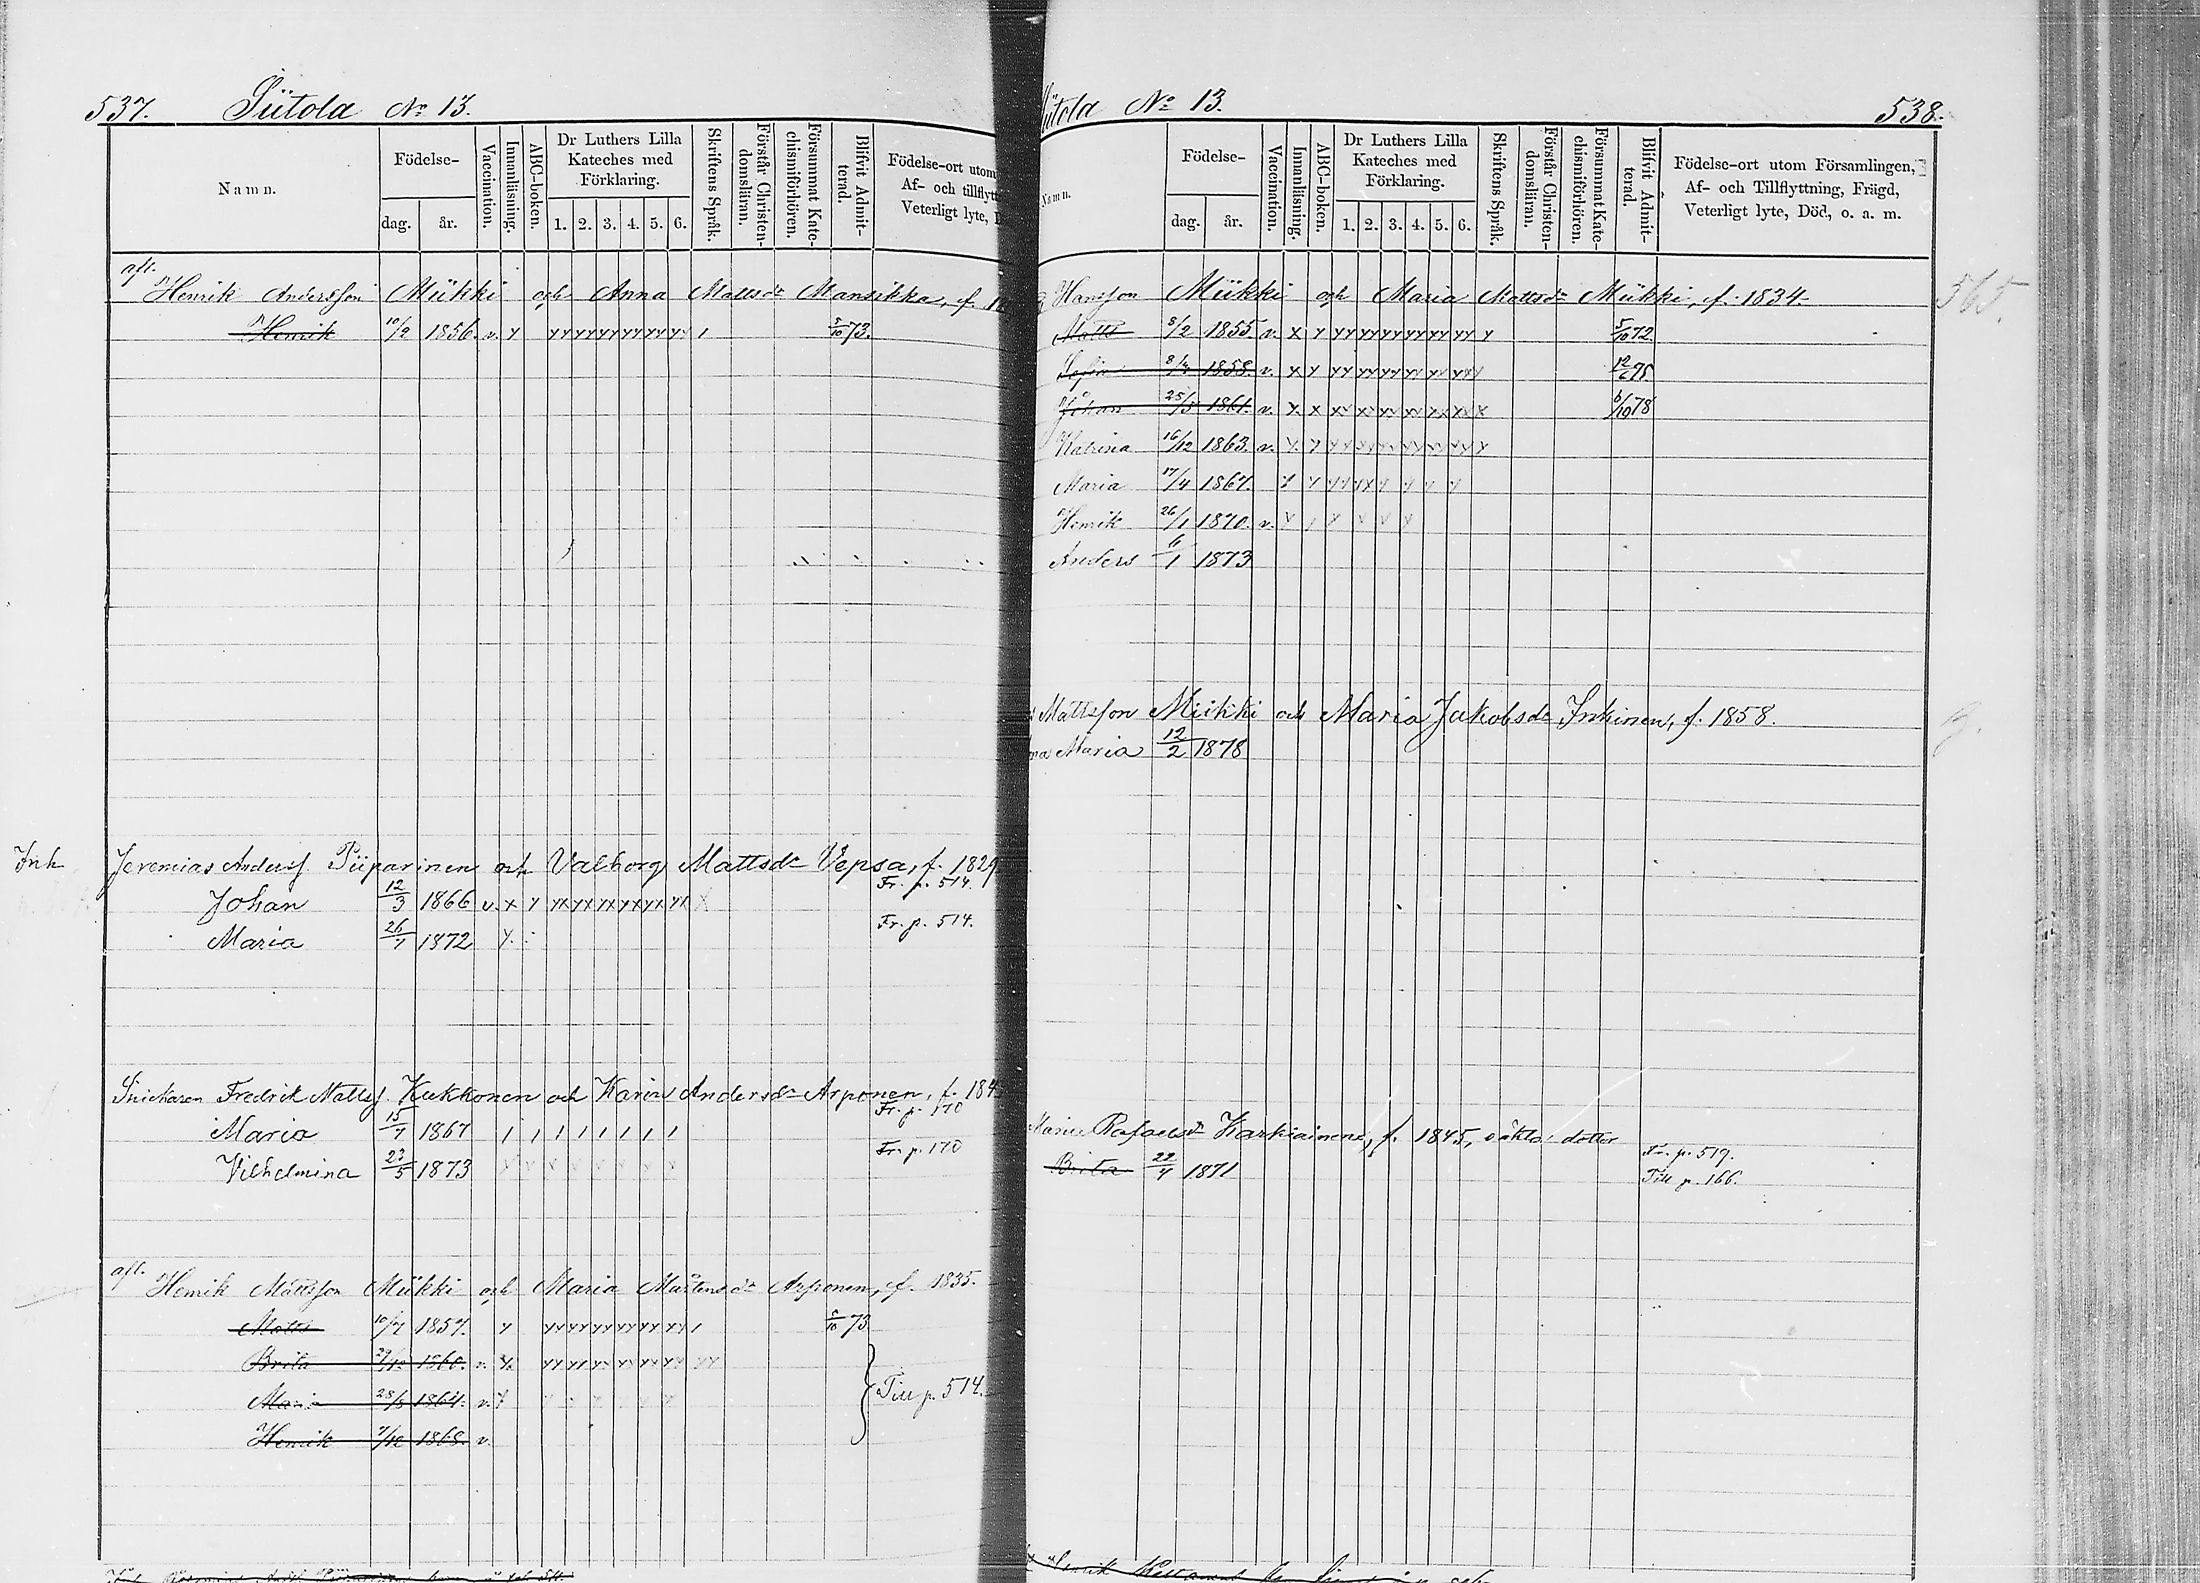 537. Siitola No 13.
Namn.
Födelse-
dag. år.
Vaccination.
Innanläsning.
ABC-boken.
Dr Luthers Lilla
Kateches med
Förklaring.
1. 2. 3. 4. 5. 6.
Skriftens Språk.
Förstår Christen-
domsläran.
Försummat Kate-
chismiförhören.
Blifvit Admit-
terad.
Födelse-ort utom
Af- och tillflytt
Veterligt lyte, D
afl.
Henrik Andersson Miikki och Anna Mattsdr Mansikka, f.
Henrik 10/2 1856. v. x xx xx xx xx xx xx / 5/10 73.
Inh Jeremias Anderss. Piiparinen och Valborg Mattsdr Vepsa, f. 1829
Fr. p. 514.
Johan 12/3 1866 v. x x xx xx xx xx xx xx x
Fr. p. 514.
Maria 26/7 1872 x
Snickaren Fredrik Mattss. Kukkonen och Karin Andersdr Arponen, f. 184
Fr. p. 170
Maria 15/7 1867 / / / / / / / /
Fr. p. 170
Vilhelmina 23/5 1873 x x x x x x x x
afl. Henrik Mattsson Miikki och Maria Mårtensdr Arponen, f. 1835.
Matts 10/7 1857. x xx xx xx xx xx xx / 5/10 73
Brita 29/12 1860. v. x xx xx xx xx xx xx xx
Maria 28/5 1864. v. x
Till p. 514.
Henrik 7/12 1868. v.
538.
Siitola No 13.
Namn.
Födelse-
dag. år.
Vaccination.
Innanläsning.
ABC-boken.
Dr Luthers Lilla
Kateches med
Förklaring.
1. 2. 3. 4. 5. 6.
Skriftens Språk.
Förstår Christen-
domsläran.
Försummat Kate-
chismiförhören.
Blifvit Admit-
terad.
Födelse-ort utom Församlingen,
Af- och Tillflyttning, Frägd,
Veterligt lyte, Död, o. a. m.
Hansson Miikki och Maria Mattsdr Miikki, f. 1834. 565.
Matts 8/2 1855. v. x x xx xx xx xx xx xx x 5/10 72.
Sofia 8/4 1858. v. x x xx xx xx xx xx xx x 12/6 75
Johan 25/5 1861. v. x x xx xx xx xx xx xx x 6/10 78
Katrina 16/12 1863. v. x x xx xx xx xx xx xx x
Maria 17/4 1867. x x xx xx x x x x
Henrik 26/1 1870. v. x / x x x x
Anders 6/1 1873
Mattsson Miikki och Maria Jakobsdr Inkinen, f. 1858.
Maria 12/2 1878
Maria Rafaelsdr Karkiainen, f. 1845, oäkta dotter
Fr. p. 519.
Brita 29/4 1871
Till p. 166.